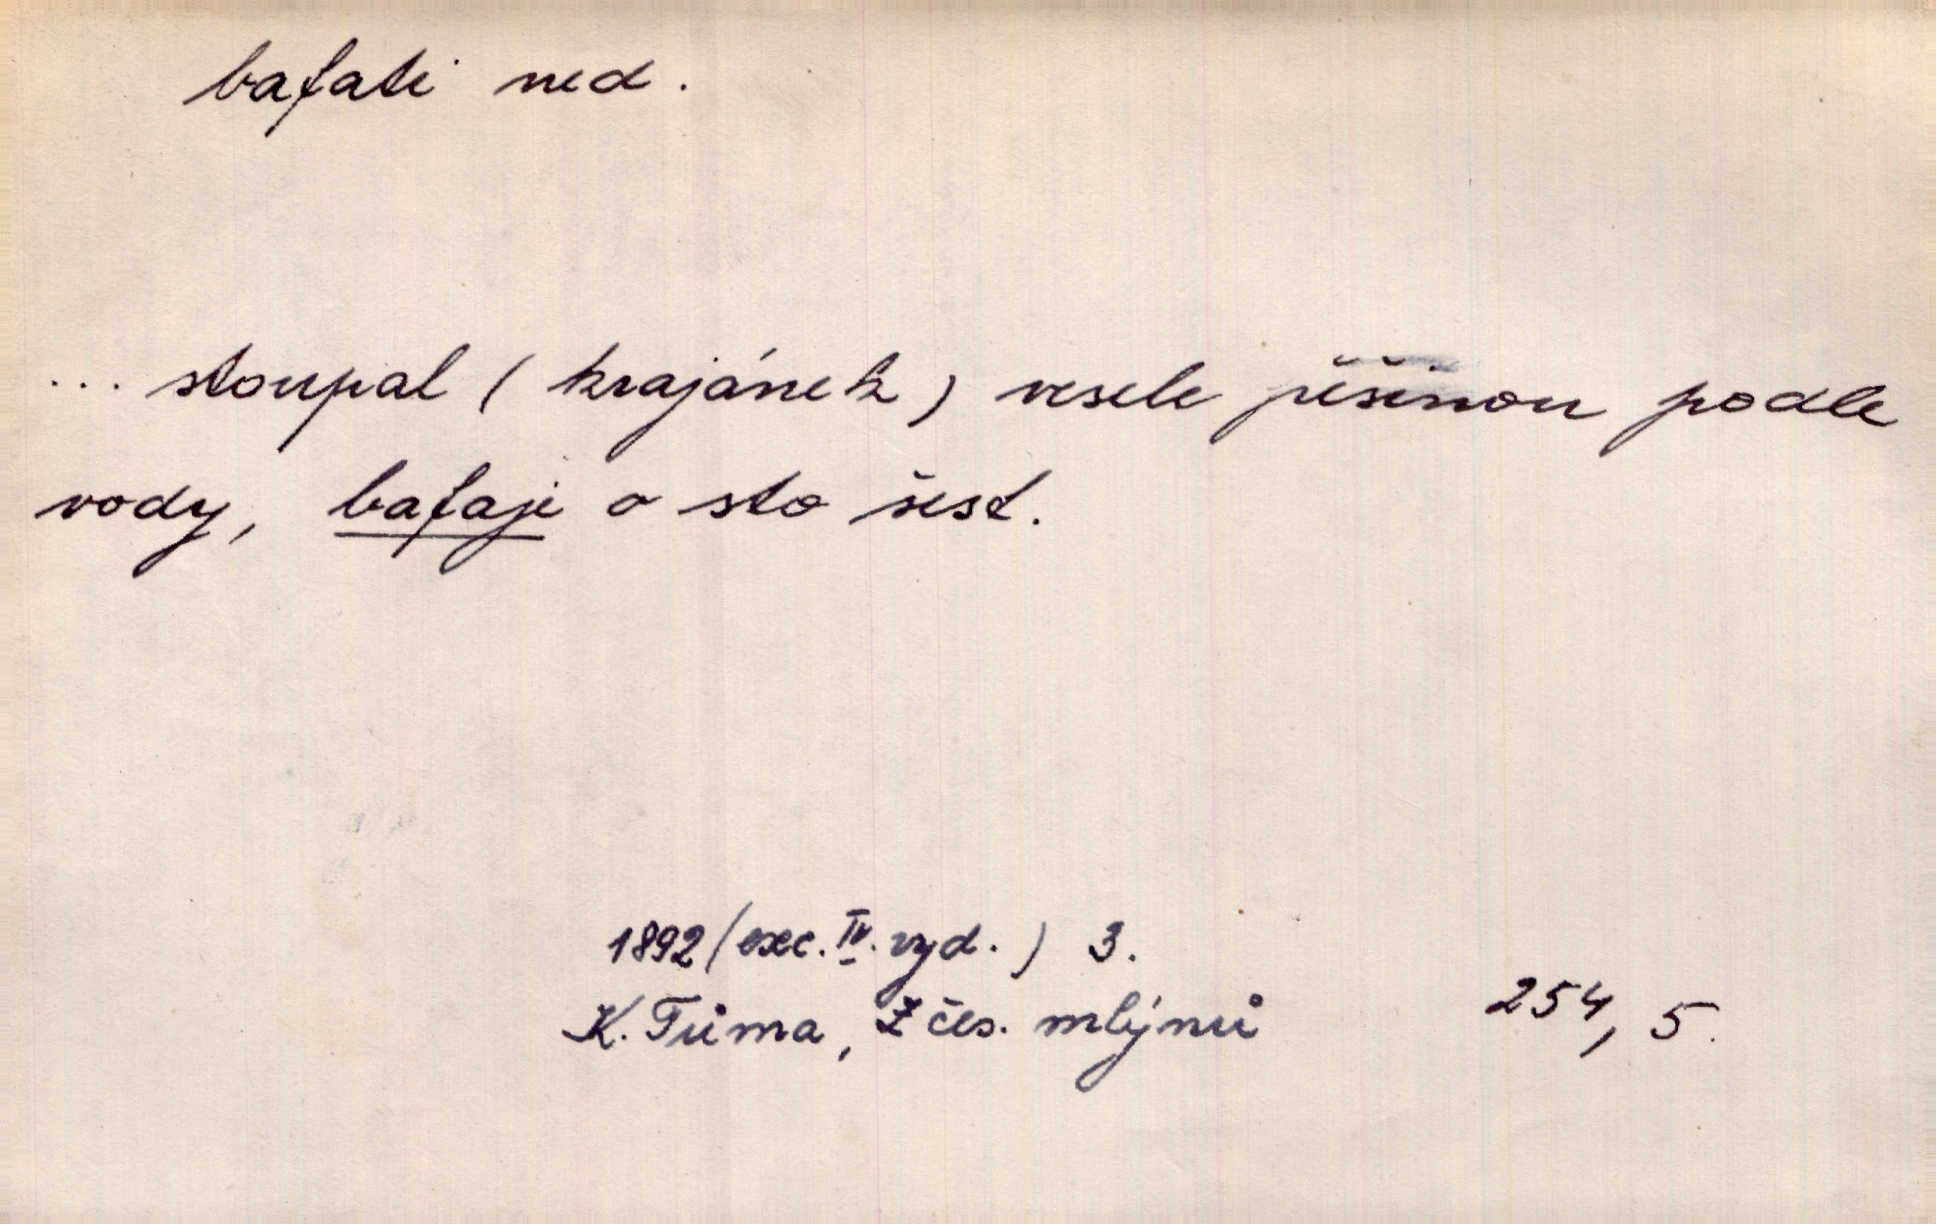 bafati ned.
... stoupal (krajánek) vesele pěšinou podle
vody, bafaje o sto šest.
1892 (exc. IV. vyd.) 3.
K. Tůma, Z čes. mlýnů 254, 5.